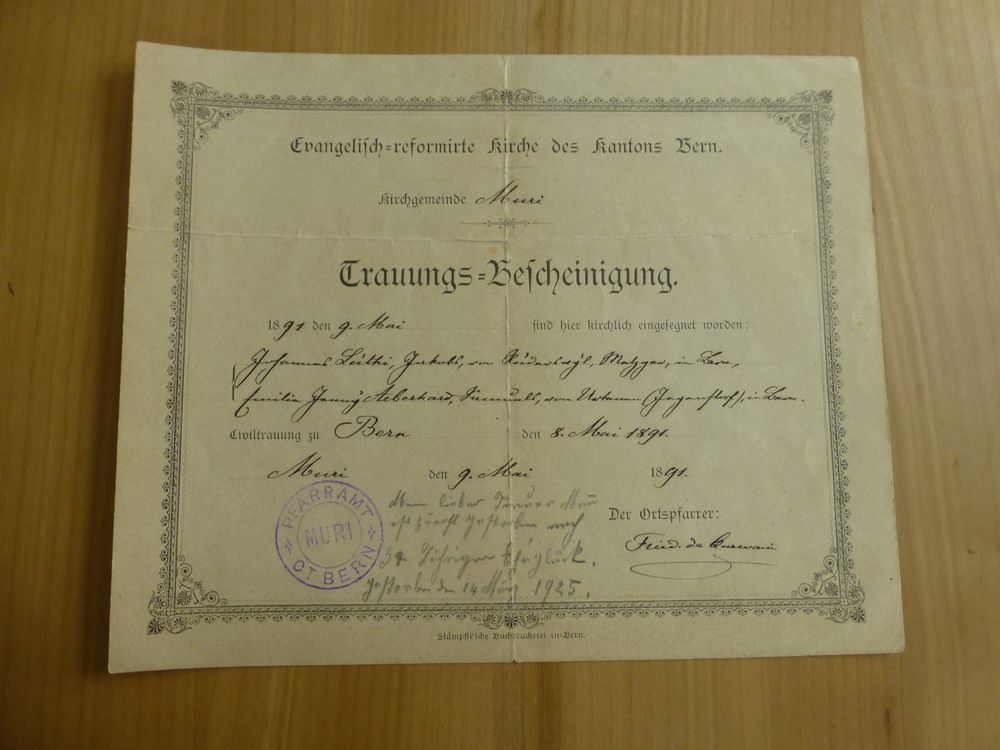 Evangelisch-reformirte Kirche des Kantons Bern.
Kirchgemeinde Muri
Trauungs-Bescheinigung.
1891 den 9. Mai sind hier kirchlich eingesegnet worden:
Johannes Lüthi, Jakobs, von Rüderswyl, Metzger, in Bern,
Emilie Jenny Aeberhard, Samuels, von Urtenen (Jegenstorf), in Bern.
Civiltrauung zu Bern den 8. Mai 1891.
Muri den 9. Mai 1891.
PFARRAMT
MURI
CT BERN
Mein lieber Treuer Man
ist zuerst gestorben nach
34 Jährigen Eheglück.
gestorben den 14 März 1925.
Der Ortspfarrer:
Fried. de Quervain
Stämpfli'sche Buchdruckerei in Bern.